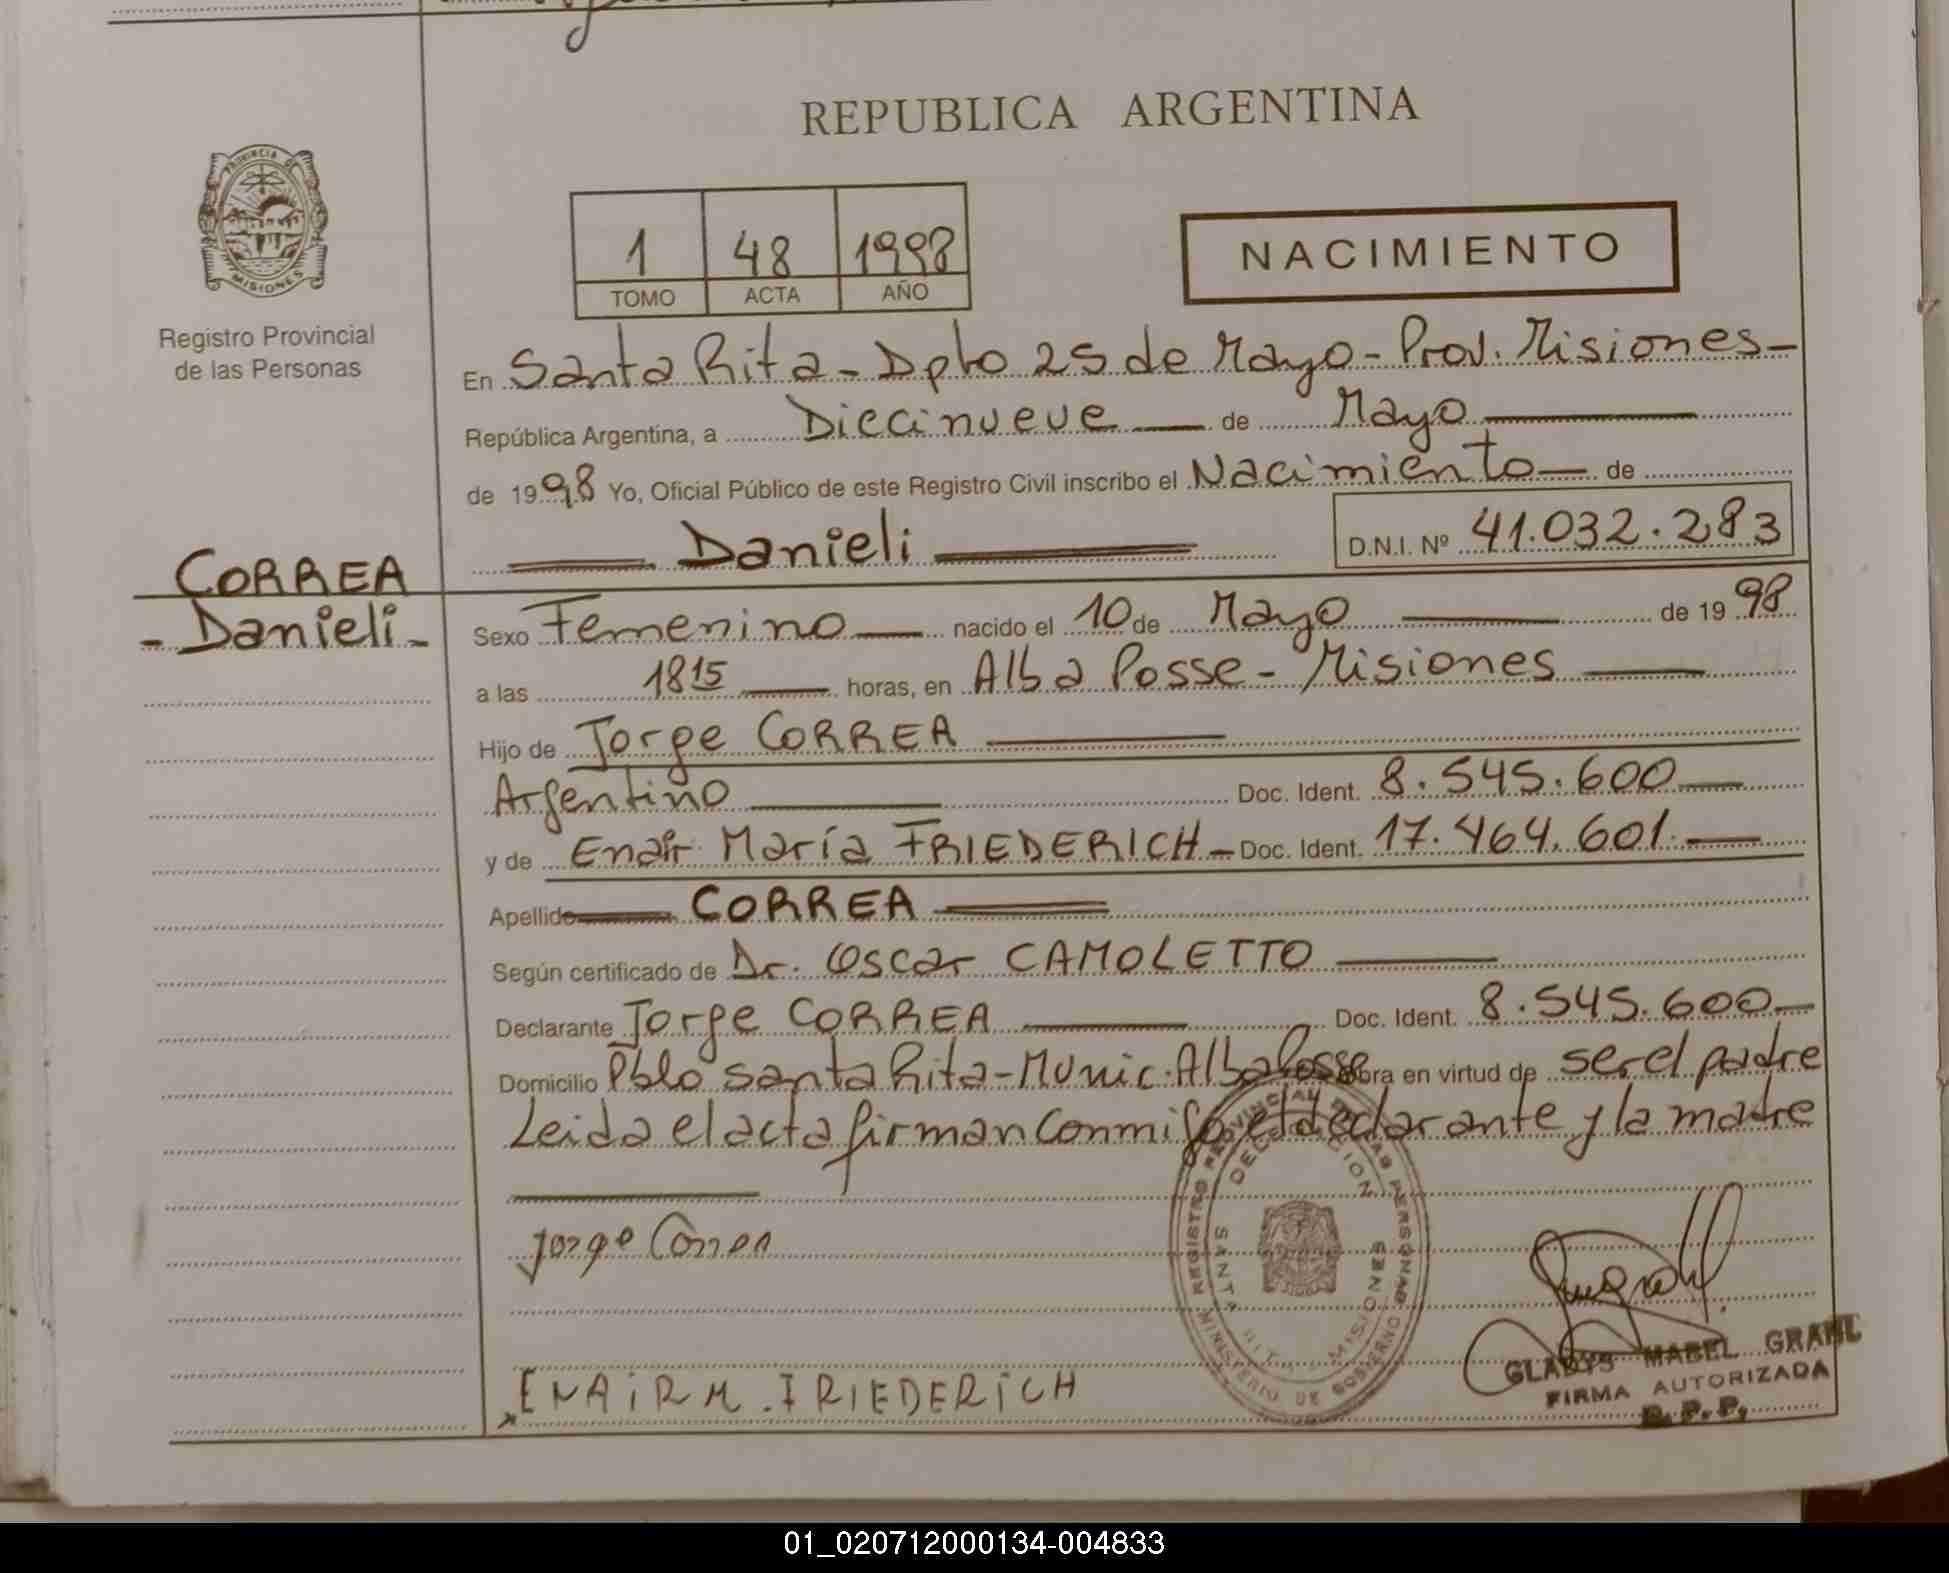 REPUBLICA ARGENTINA
PROVINCIA DE
MISIONES
Registro Provincial
de las Personas
1 48 1998
TOMO ACTA AÑO
NACIMIENTO
En Santa Rita - Dpto 25 de Mayo - Prov. Misiones -
República Argentina, a Diecinueve de Mayo
de 1998 Yo, Oficial Público de este Registro Civil inscribo el Nacimiento de
Danieli D.N.I. Nº 41.032.283
CORREA
- Danieli -
Sexo Femenino nacido el 10 de Mayo de 1998
a las 1815 horas, en Alba Posse - Misiones
Hijo de Jorge CORREA
Argentino Doc. Ident. 8.545.600
y de Enair María FRIEDERICH - Doc. Ident. 17.464.601
Apellido CORREA
Según certificado de Dr. Oscar CAMOLETTO
Declarante Jorge CORREA Doc. Ident. 8.545.600
Domicilio Pblo Santa Rita - Munic. Alba Posse obra en virtud de ser el padre
Leida el acta firman conmigo el declarante y la madre
Jorge Correa
ENAIR M. FRIEDERICH
REGISTRO PROVINCIAL DE LAS PERSONAS
SANTA RITA - MISIONES
MINISTERIO DE GOBIERNO
GLADYS MABEL GRAHL
FIRMA AUTORIZADA
R. P. P.
01_020712000134-004833